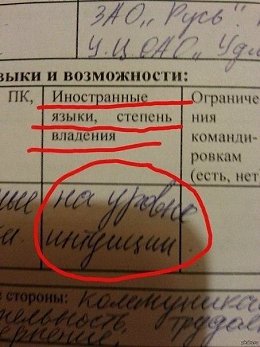 ЗАО „Русь".
У.Ц.ОАО „Удм
зыки и возможности:
ПК,
Иностранные языки, степень владения
Ограничения командировкам (есть, нет
на уровне
интуиции.
е стороны: коммуника
тельность, трудо